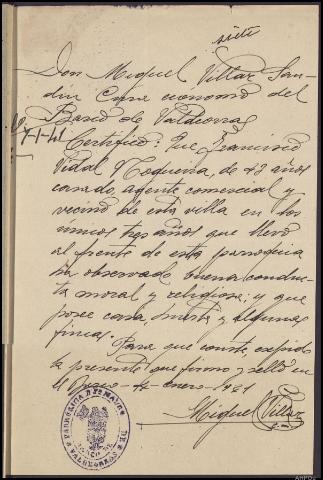 siete
Don Miguel Villar San-
din Cura ecónomo del
Barco de Valdeorras
7-1-41
Certifico: Que Francisco
Vidal Nogueira, de 43 años
casado, agente comercial y
vecino de esta villa en los
únicos tres años que llevo
al frente de esta parroquia
ha observado buena conduc-
ta moral y religiosa; y que
posee casa, huerta y algunas
fincas.
Para que conste, expido
la presente que firmo y sello en
el Barco - 4 - enero - 1941
Miguel Villar